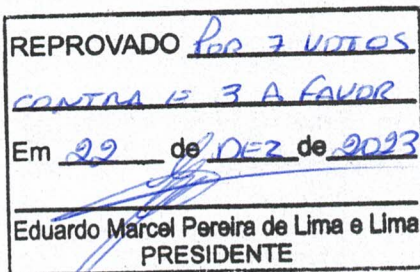 REPROVADO POR 7 VOTOS
CONTRA E 3 A FAVOR
Em 22 de DEZ de 2023
Eduardo Marcel Pereira de Lima e Lima
PRESIDENTE